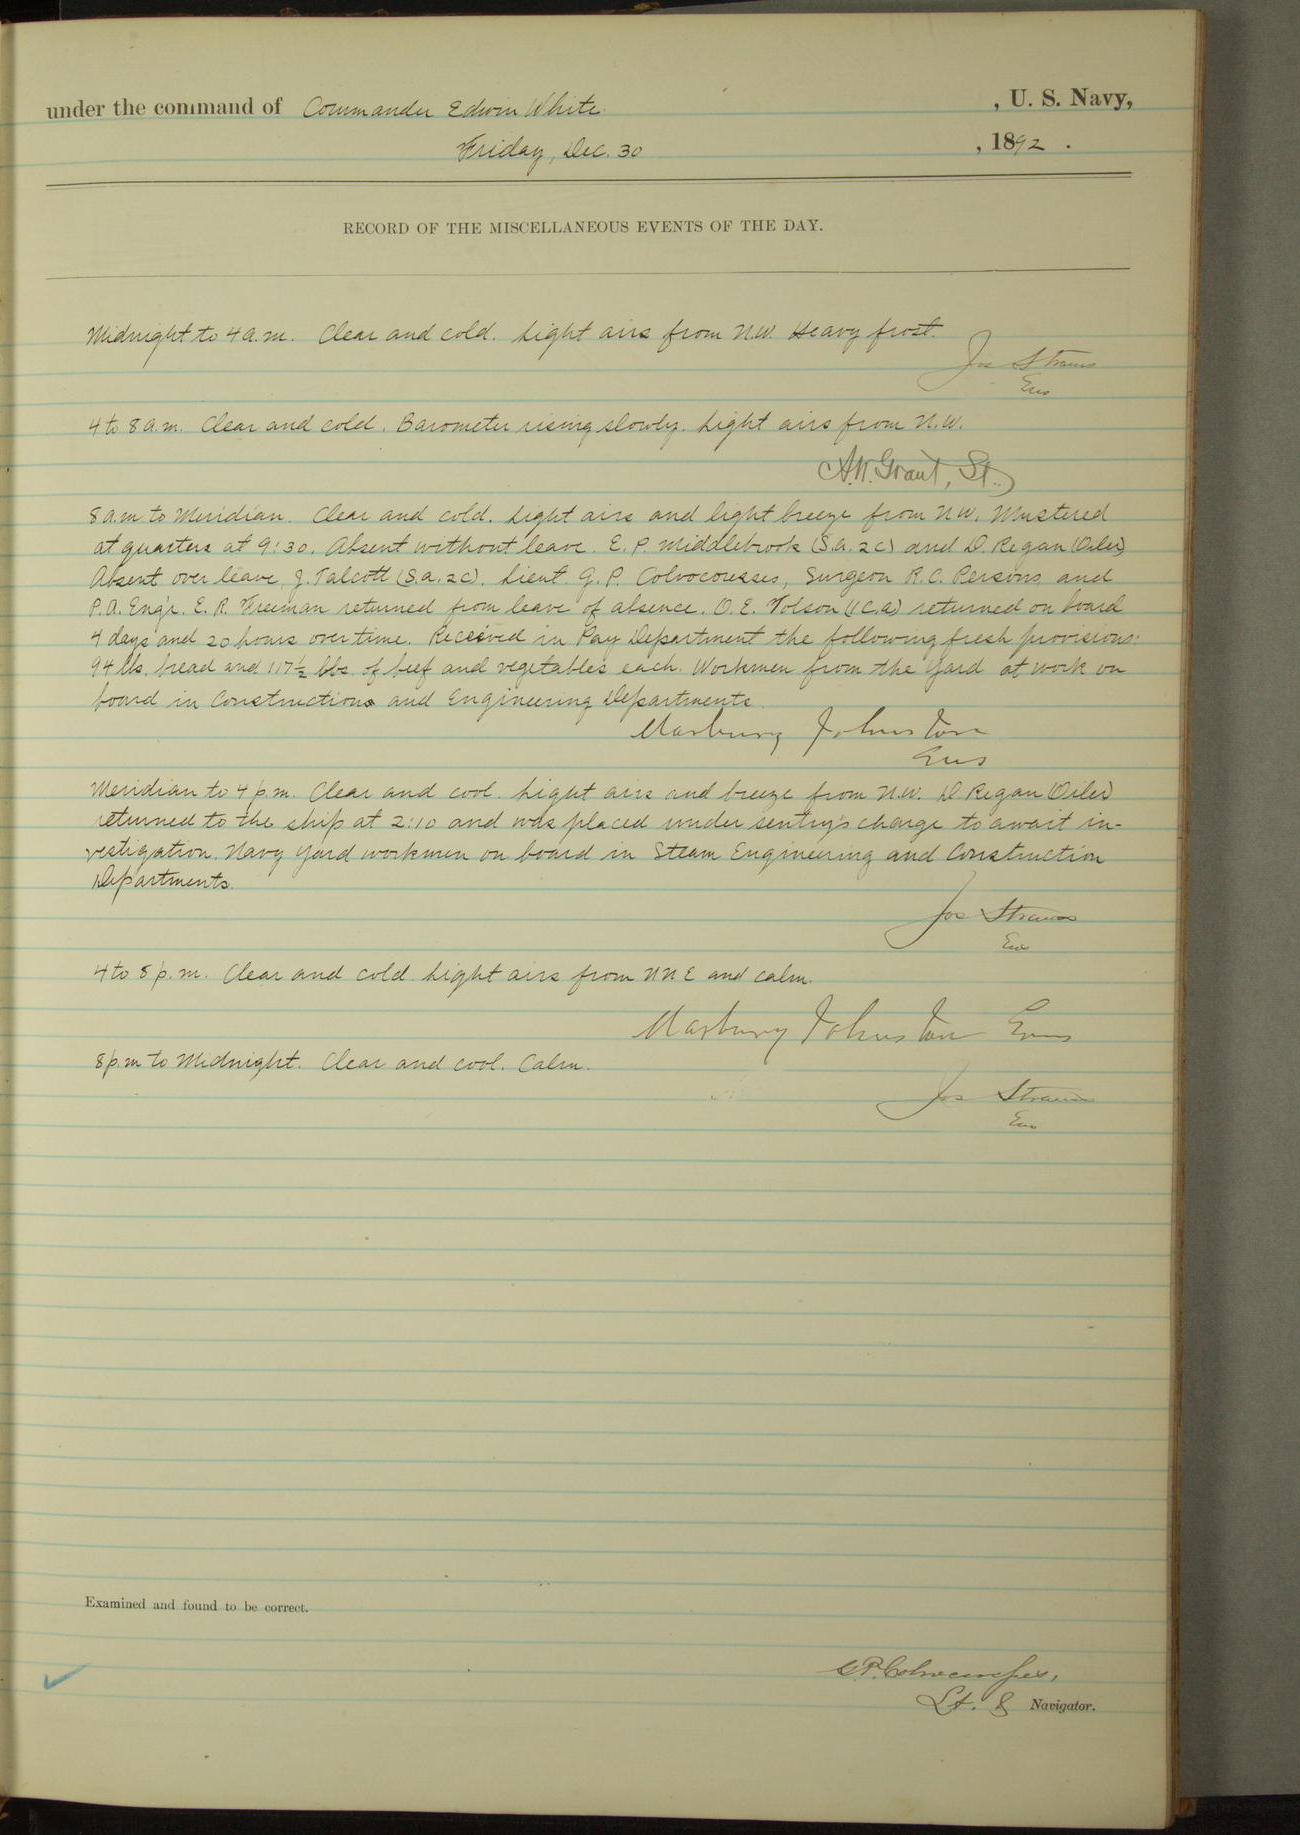 under the command of Commander Edwin White , U. S. Navy,
Friday, Dec. 30 , 1892 .
RECORD OF THE MISCELLANEOUS EVENTS OF THE DAY.
Midnight to 4 a.m. Clear and cold. Light airs from N.W. Heavy frost.
Jos Strauss
Ens
4 to 8 a.m. Clear and cold. Barometer rising slowly. Light airs from N.W.
A.W. Grant, Lt.
8 a.m. to Meridian. Clear and cold. Light airs and light breeze from N.W. Mustered
at quarters at 9:30. Absent without leave. E. P. Middlebrook (S.a. 2c) and D. Regan (Oiler)
Absent over leave, J. Talcott (S.a. 2c). Lieut. G. P. Colvocoresses, Surgeon R. C. Persons, and
P.A. Eng'r. E. R. Freeman returned from leave of absence. O. E. Tolson (1C.a) returned on board
4 days and 20 hours over time. Received in Pay Department the following fresh provisions:
94 lbs. bread and 117½ lbs. of beef and vegetables each. Workmen from the Yard at work on
board in Construction and Engineering Departments.
Marbury Johnston
Ens
Meridian to 4 p.m. Clear and cool. Light airs and breeze from N.W. D. Regan (Oiler)
returned to the ship at 2:10 and was placed under sentry's charge to await in-
vestigation. Navy Yard workmen on board in Steam Engineering and Construction
Departments.
Jos Strauss
Ens
4 to 8 p.m. Clear and cold. Light airs from N N E and calm.
Marbury Johnston Ens
8 p.m to Midnight. Clear and cool. Calm.
Jos Strauss
Ens
Examined and found to be correct.
G.P. Colvocoresses,
Lt. & Navigator.